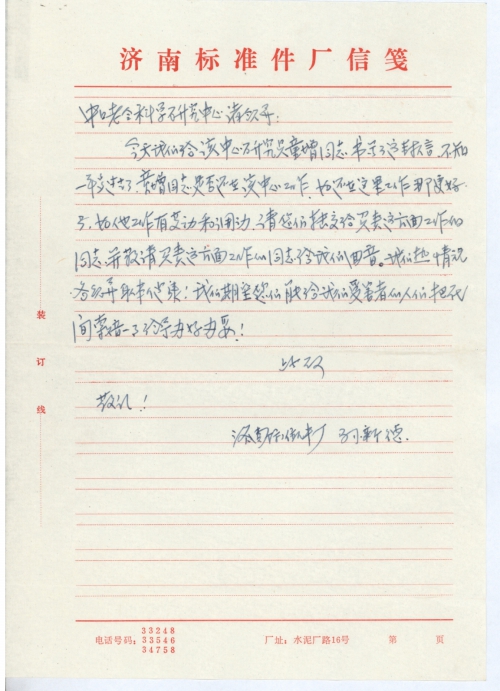 济南标准件厂信笺
中口老令科学研究中心诸领导:
今天我们给该中心研究员童增同志书写了这封信,不知
一年过去了童增同志是否还在该中心工作,如还在这里工作那更好
了.如他工作有变动和调动,请您们转交给负责这方面工作的
同志,并敬请负责这方面工作的同志给我们回音。我们
!我们期望您们能给我们受害者的人们把
办好办妥!
此致
敬礼!
济南标准件厂 孙新德.
装
订
线
电话号码:33248
33546
34758
厂址:水泥厂路16号
第 页